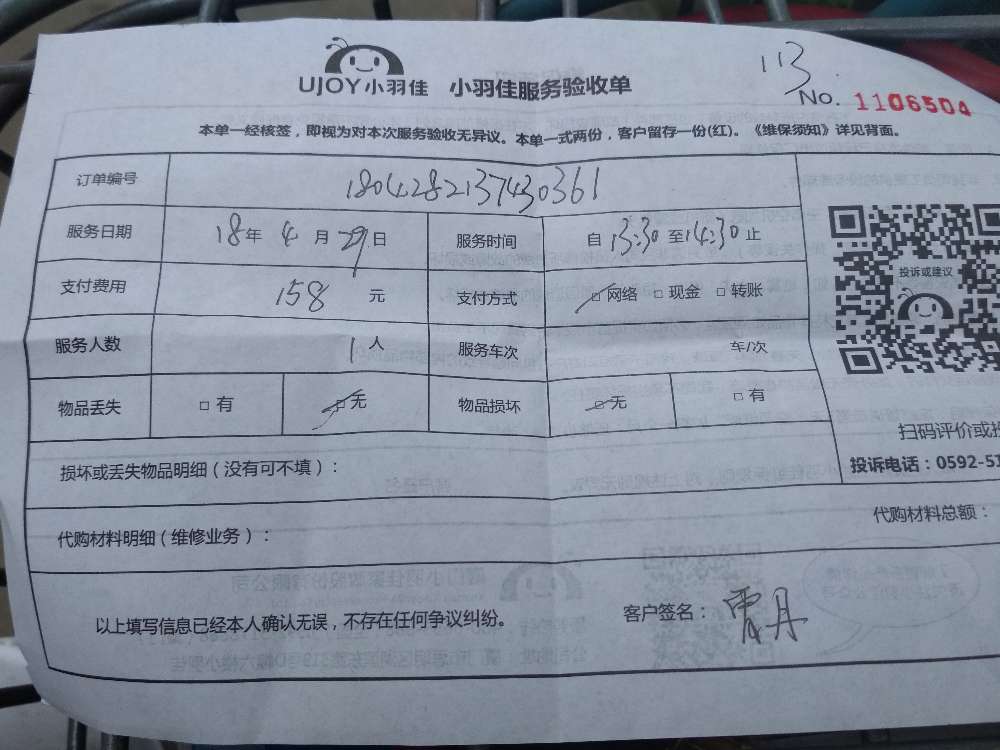 113
UJOY小羽佳 小羽佳服务验收单
No. 1106504
本单一经核签，即视为对本次服务验收无异议。本单一式两份，客户留存一份(红)。《维保须知》详见背面。
订单编号 1804282137430361
服务日期 18年 4月 29日 服务时间 自13:30至14:30止
支付费用 158 元 支付方式 □网络 □现金 □转账
投诉或建议
服务人数 1人 服务车次 车/次
物品丢失 □有 □无 物品损坏 □无 □有
扫码评价或投
损坏或丢失物品明细（没有可不填）：
投诉电话：0592-51
代购材料明细（维修业务）：
代购材料总额：
以上填写信息已经本人确认无误，不存在任何争议纠纷。 客户签名：